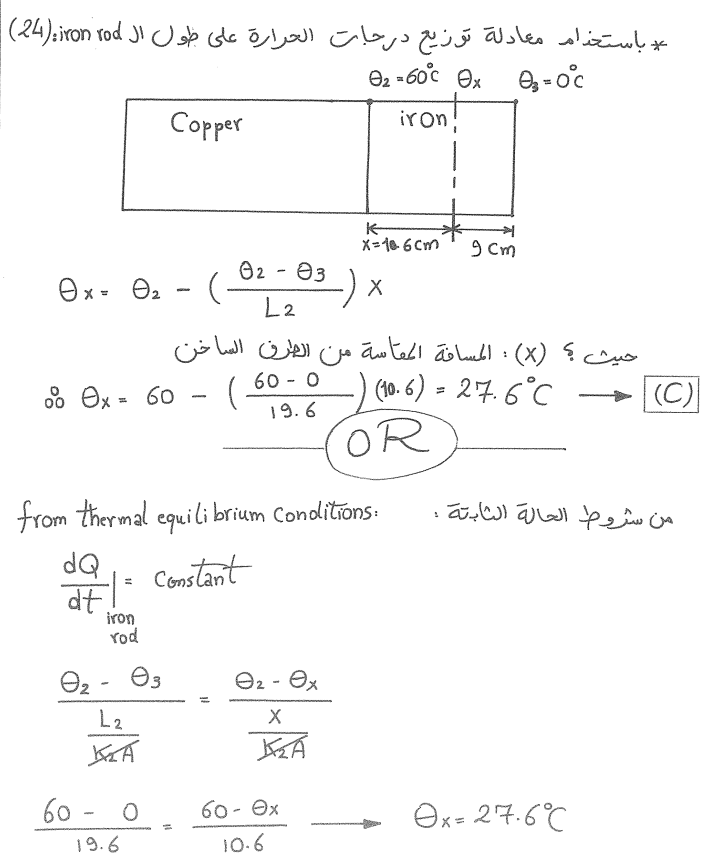 (24) * باستخدام معادلة توزيع درجات الحرارة على طول ال iron rod:
θ₂ = 60°C θx θ₃ = 0°C
Copper iron
x=10.6cm 9 cm
θx = θ₂ - ( (θ₂ - θ₃) / L₂ ) x
حيث ؟ (x) : المسافة المقاسة من الطرف الساخن
∴ θx = 60 - ( (60 - 0) / 19.6 ) (10.6) = 27.6°C → (C)
OR
from thermal equilibrium Conditions: من شروط الحالة الثابتة :
dQ/dt | iron rod = Constant
(θ₂ - θ₃) / (L₂ / K₂A) = (θ₂ - θx) / (x / K₂A)
(60 - 0) / 19.6 = (60 - θx) / 10.6 → θx = 27.6°C